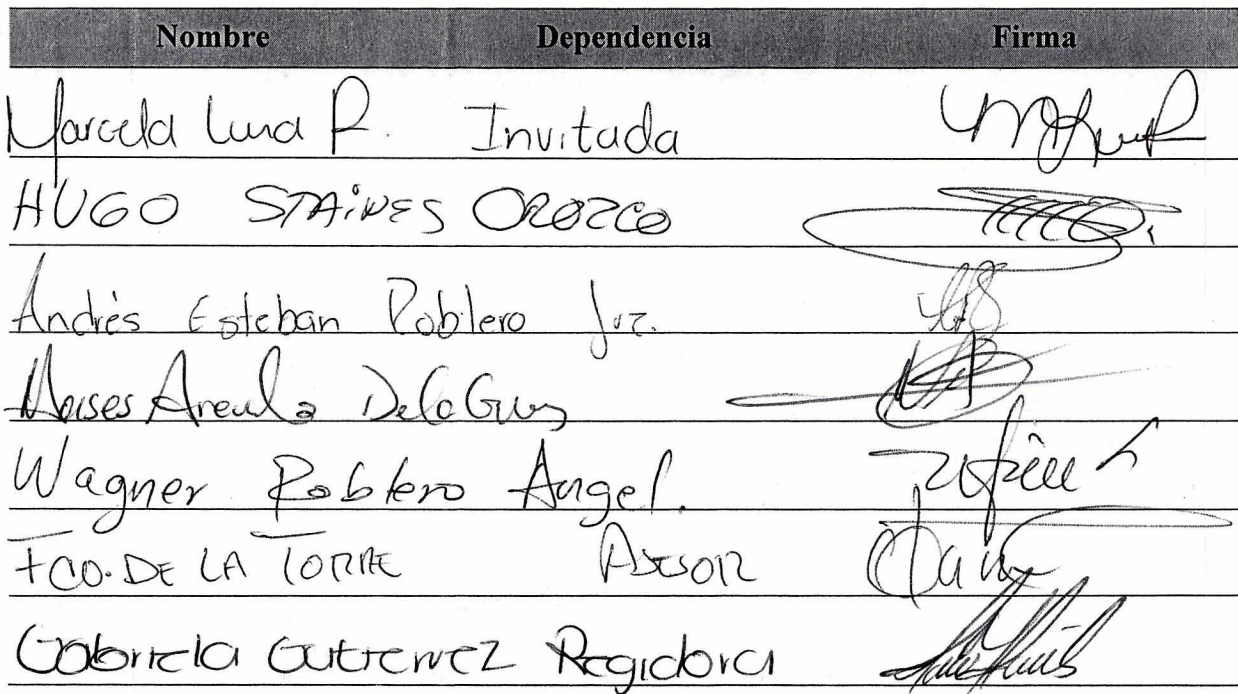 Nombre Dependencia Firma
Marcela Luna R. Invitada
HUGO STAINES OROZCO
Andrés Esteban Roblero
Moises De la Cruz
Wagner Roblero Angel.
FCO. DE LA TORRE ASESOR
Gabriela Gutierrez Regidora